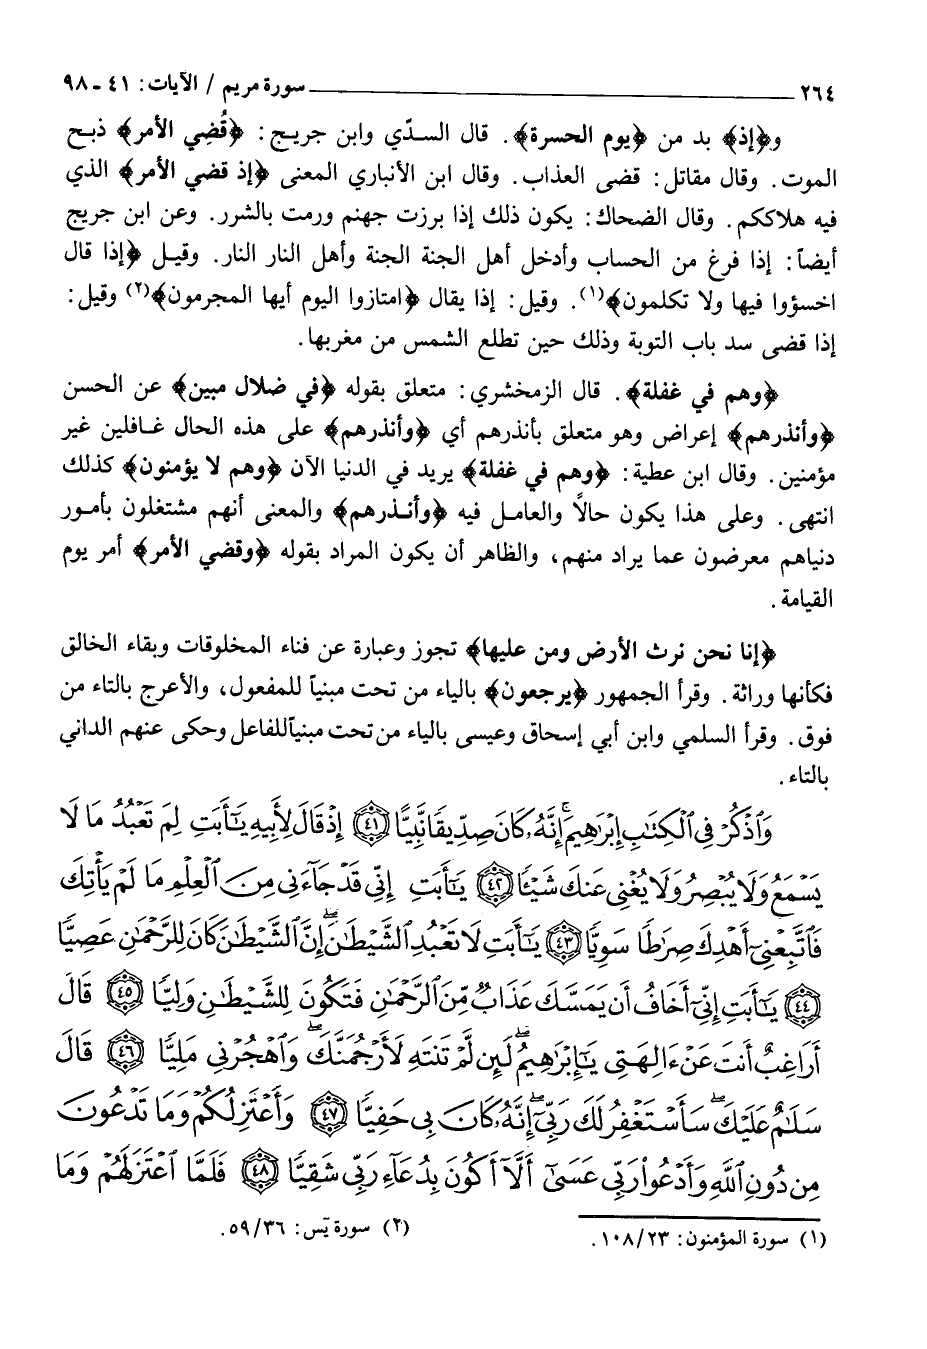 ٢٦٤ سورة مريم / الآيات: ٤١ - ٩٨
و﴿إذ﴾ بد من ﴿يوم الحسرة﴾. قال السدّي وابن جريج: ﴿قُضِي الأمر﴾ ذبح
الموت. وقال مقاتل: قضى العذاب. وقال ابن الأنباري المعنى ﴿إذ قضي الأمر﴾ الذي
فيه هلاككم. وقال الضحاك: يكون ذلك إذا برزت جهنم ورمت بالشرر. وعن ابن جريج
أيضاً: إذا فرغ من الحساب وأدخل أهل الجنة الجنة وأهل النار النار. وقيل ﴿إذا قال
اخسؤوا فيها ولا تكلمون﴾(١). وقيل: إذا يقال ﴿امتازوا اليوم أيها المجرمون﴾(٢) وقيل:
إذا قضى سد باب التوبة وذلك حين تطلع الشمس من مغربها.
﴿وهم في غفلة﴾. قال الزمخشري: متعلق بقوله ﴿في ضلال مبين﴾ عن الحسن
﴿وأنذرهم﴾ إعراض وهو متعلق بأنذرهم أي ﴿وأنذرهم﴾ على هذه الحال غافلين غير
مؤمنين. وقال ابن عطية: ﴿وهم في غفلة﴾ يريد في الدنيا الآن ﴿وهم لا يؤمنون﴾ كذلك
انتهى. وعلى هذا يكون حالًا والعامل فيه ﴿وأنذرهم﴾ والمعنى أنهم مشتغلون بأمور
دنياهم معرضون عما يراد منهم، والظاهر أن يكون المراد بقوله ﴿وقضي الأمر﴾ أمر يوم
القيامة.
﴿إنا نحن نرث الأرض ومن عليها﴾ تجوز وعبارة عن فناء المخلوقات وبقاء الخالق
فكأنها وراثة. وقرأ الجمهور ﴿يرجعون﴾ بالياء من تحت مبنياً للمفعول، والأعرج بالتاء من
فوق. وقرأ السلمي وابن أبي إسحاق وعيسى بالياء من تحت مبنياً للفاعل وحكى عنهم الداني
بالتاء.
وَٱذْكُرْ فِى ٱلْكِتَٰبِ إِبْرَٰهِيمَ ۚ إِنَّهُۥ كَانَ صِدِّيقًا نَّبِيًّا ٤١ إِذْ قَالَ لِأَبِيهِ يَٰٓأَبَتِ لِمَ تَعْبُدُ مَا لَا
يَسْمَعُ وَلَا يُبْصِرُ وَلَا يُغْنِى عَنكَ شَيْـًٔا ٤٢ يَٰٓأَبَتِ إِنِّى قَدْ جَآءَنِى مِنَ ٱلْعِلْمِ مَا لَمْ يَأْتِكَ
فَٱتَّبِعْنِىٓ أَهْدِكَ صِرَٰطًا سَوِيًّا ٤٣ يَٰٓأَبَتِ لَا تَعْبُدِ ٱلشَّيْطَٰنَ ۖ إِنَّ ٱلشَّيْطَٰنَ كَانَ لِلرَّحْمَٰنِ عَصِيًّا
٤٤ يَٰٓأَبَتِ إِنِّىٓ أَخَافُ أَن يَمَسَّكَ عَذَابٌ مِّنَ ٱلرَّحْمَٰنِ فَتَكُونَ لِلشَّيْطَٰنِ وَلِيًّا ٤٥ قَالَ
أَرَاغِبٌ أَنتَ عَنْ ءَالِهَتِى يَٰٓإِبْرَٰهِيمُ ۖ لَئِن لَّمْ تَنتَهِ لَأَرْجُمَنَّكَ ۖ وَٱهْجُرْنِى مَلِيًّا ٤٦ قَالَ
سَلَٰمٌ عَلَيْكَ ۖ سَأَسْتَغْفِرُ لَكَ رَبِّىٓ ۖ إِنَّهُۥ كَانَ بِى حَفِيًّا ٤٧ وَأَعْتَزِلُكُمْ وَمَا تَدْعُونَ
مِن دُونِ ٱللَّهِ وَأَدْعُوا۟ رَبِّى عَسَىٰٓ أَلَّآ أَكُونَ بِدُعَآءِ رَبِّى شَقِيًّا ٤٨ فَلَمَّا ٱعْتَزَلَهُمْ وَمَا
(١) سورة المؤمنون: ١٠٨/٢٣. (٢) سورة يٓس: ٥٩/٣٦.